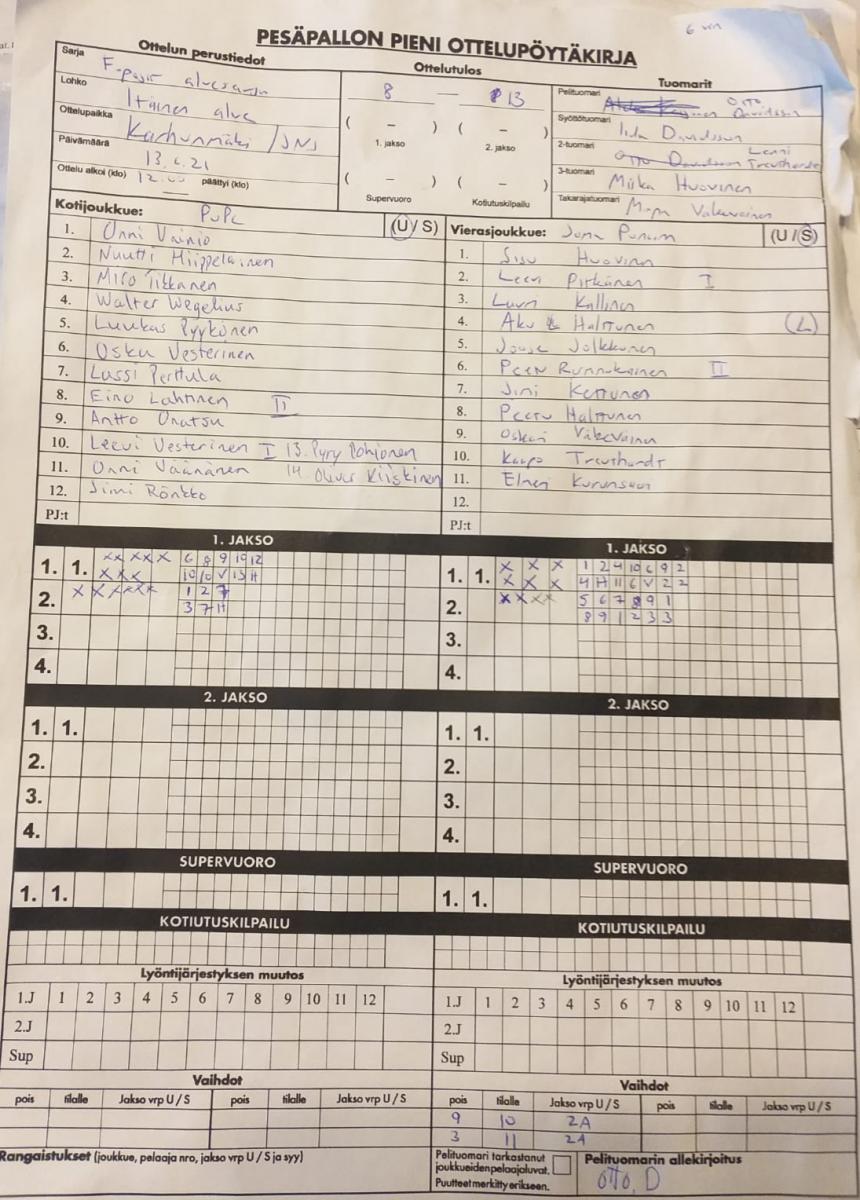 PESÄPALLON PIENI OTTELUPÖYTÄKIRJA
Sarja
Ottelun perustiedot
Lohko
Itäinen alue
Ottelupaikka
Karhunmäki / JNS
Päivämäärä
13.6.21
Ottelu alkoi (klo) 12.00 päättyi (klo)
Ottelutulos
8 — 13
( – ) ( – )
1. jakso 2. jakso
( – ) ( – )
Supervuoro Kotiutuskilpailu
Tuomarit
Pelituomari Otto Davidsson
Syöttötuomari Iida Davidsson
2-tuomari Leevi
3-tuomari Miika Huovinen
Takarajatuomari
Kotijoukkue: (U / S)
1. Onni Vainio
2. Nuutti Hiippelainen
3. Miro Tikkanen
4. Walter Wegelius
5. Luukas Pyykönen
6. Osku Vesterinen
7. Lassi Perttula
8. Eino Lahtinen II
9. Antto
10. Leevi Vesterinen I 13. Pyry Pohjonen
11. Onni Väänänen 14. Oliver Kiiskinen
12. Jimi Rönkkö
PJ:t
Vierasjoukkue: Joma (U / S)
1. Sisu Huovinen
2. Leevi Pitkänen I
3. Lauri Kallinen
4. Aku Halttunen (L)
5. Joose Jolkkonen
6. Peetu II
7. Jimi Kettunen
8. Peetu Halttunen
9. Oskari Väkeväinen
10. Kaapo
11.
12.
PJ:t
1. JAKSO
1. 1. X X X X X 6 8 9 10 12
X X X 10 10 V 13 H
2. X X X X X 1 2 7
3 7 H
3.
4.
1. JAKSO
1. 1. X X X 1 2 4 10 6 9 2
X X X 4 H 11 6 V 2 2
2. X X X X 5 6 7 8 9 1
8 9 1 2 3 3
3.
4.
2. JAKSO
1. 1.
2.
3.
4.
2. JAKSO
1. 1.
2.
3.
4.
SUPERVUORO
1. 1.
SUPERVUORO
1. 1.
KOTIUTUSKILPAILU
KOTIUTUSKILPAILU
Lyöntijärjestyksen muutos
1.J 1 2 3 4 5 6 7 8 9 10 11 12
2.J
Sup
Lyöntijärjestyksen muutos
1.J 1 2 3 4 5 6 7 8 9 10 11 12
2.J
Sup
Vaihdot
pois tilalle Jakso vrp U / S pois tilalle Jakso vrp U / S
Vaihdot
pois tilalle Jakso vrp U / S pois tilalle Jakso vrp U / S
9 10 2A
3 11 2A
Rangaistukset (joukkue, pelaaja nro, jakso vrp U / S ja syy)
Pelituomari tarkastanut
joukkueiden pelaajaluvat.
Puutteet merkitty erikseen.
Pelituomarin allekirjoitus
Otto, D